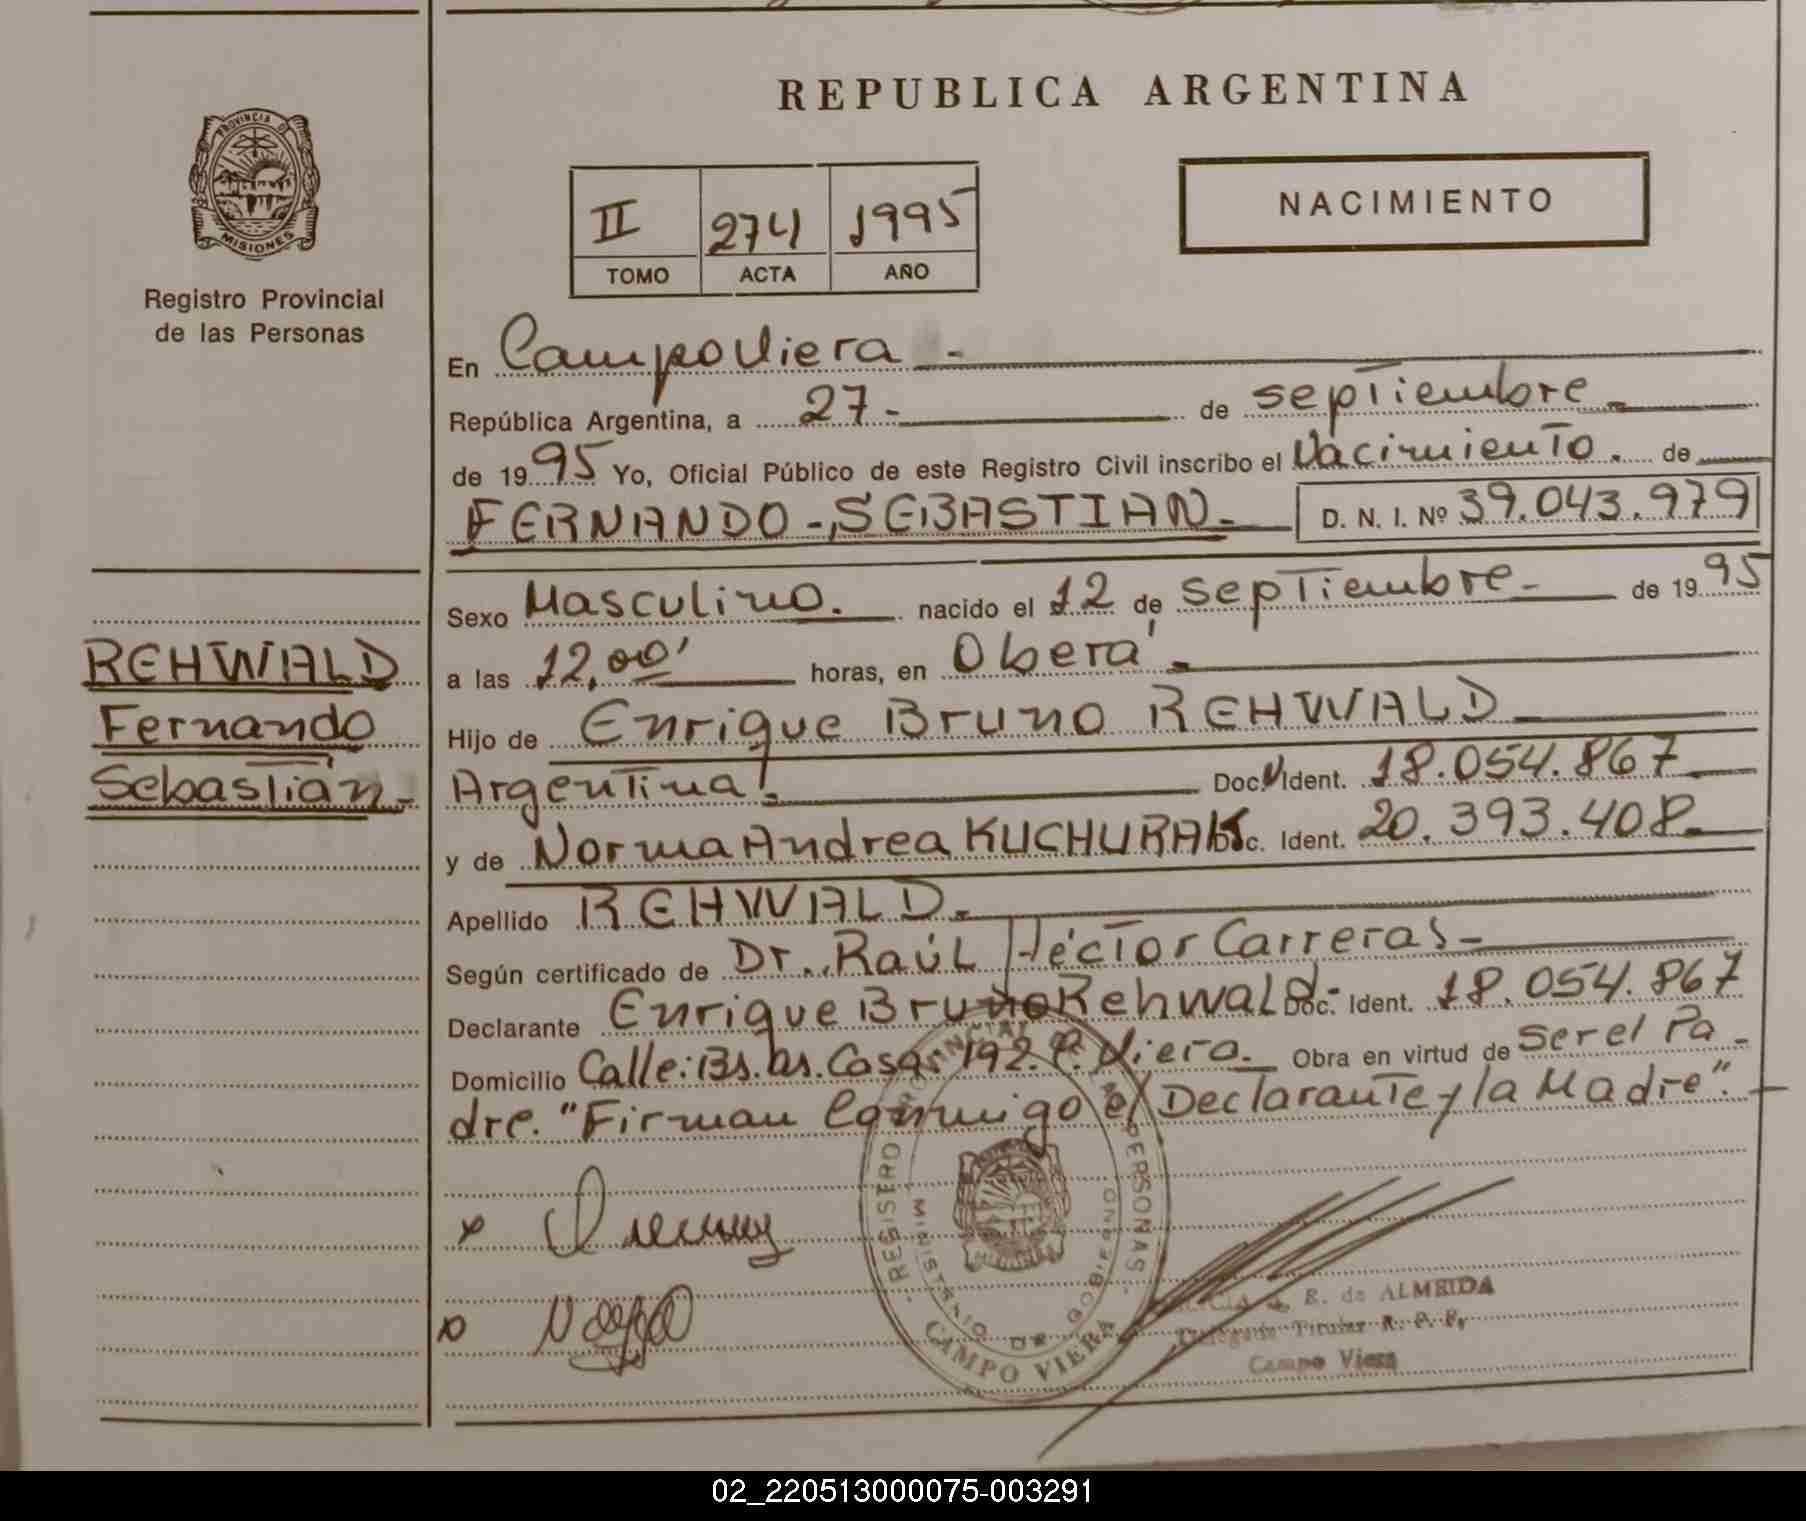 REPUBLICA ARGENTINA
PROVINCIA DE
MISIONES
Registro Provincial
de las Personas
II 274 1995
TOMO ACTA AÑO
NACIMIENTO
En Campo Viera -
República Argentina, a 27.- de septiembre -
de 1995 Yo, Oficial Público de este Registro Civil inscribo el Nacimiento. de
FERNANDO -, SEBASTIAN - D. N. I. Nº 39.043.979
Sexo Masculino. nacido el 12 de septiembre - de 1995
a las 12,00' horas, en Oberá -
Hijo de Enrique Bruno REHWALD
Argentina - Doc. Ident. 18.054.867
y de Norma Andrea KUCHURAK Doc. Ident. 20.393.408 -
Apellido REHWALD. -
Según certificado de Dr. Raúl Héctor Carreras -
Declarante Enrique Bruno Rehwald - Doc. Ident. 18.054.867
Domicilio Calle: Bs. as. Casa: 192. C. Viera - Obra en virtud de ser el Pa -
dre. "Firman Conmigo el Declarante y la Madre". -
REHWALD
Fernando
Sebastián -
REGISTRO PROVINCIAL DE PERSONAS
MINISTERIO DE GOBIERNO
CAMPO VIERA
E. de ALMEIDA
Delegada Titular R. P. P.
Campo Viera
02_220513000075-003291